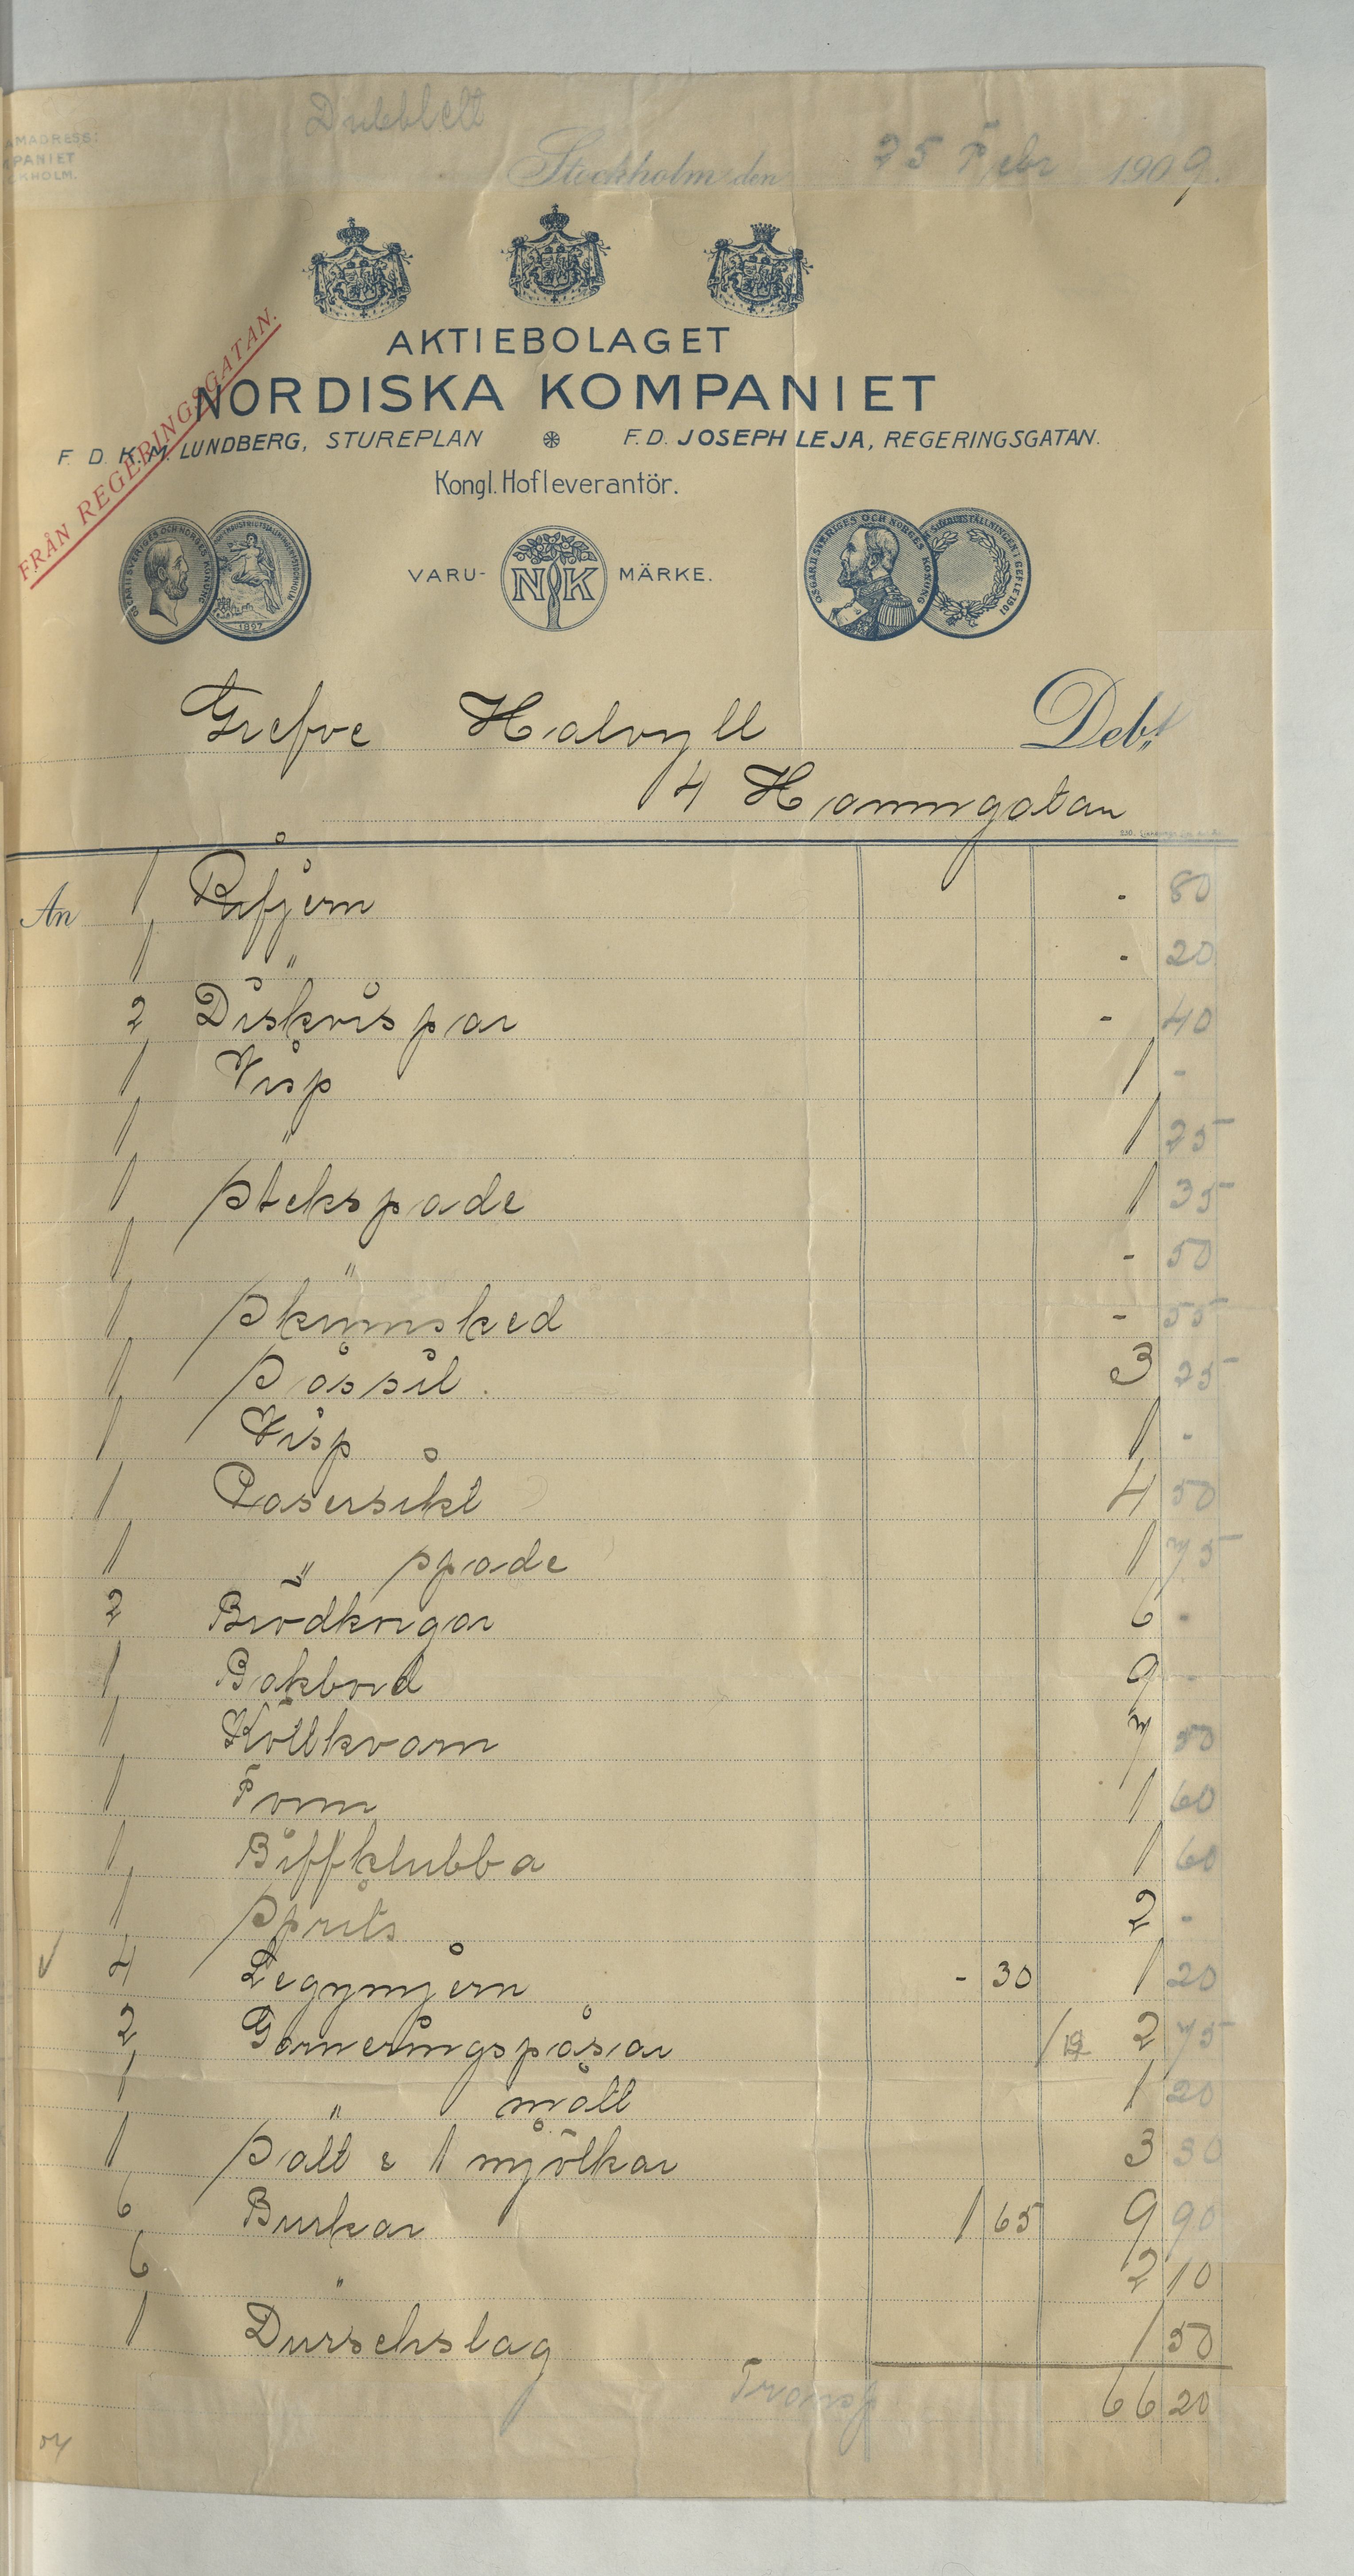 AMADRESS:
PANIET
KHOLM.
Dubblett
Stockholm den 25 Febr 1909.
FRÅN REGERINGSGATAN.
AKTIEBOLAGET
NORDISKA KOMPANIET
F. D. K. M. LUNDBERG, STUREPLAN F. D. JOSEPH LEJA, REGERINGSGATAN.
Kongl. Hofleverantör.
VARU- NK MÄRKE.
OSCAR II SVERIGES OCH NORGES KONUNG
1897
OSCAR II SVERIGES OCH NORGES KONUNG
GEFLE 1901
Grefve Halvyll Debt
4 Hamngatan
An 1 Rifjern - 80
1 " - 20
2 Diskvispar - 40
1 Visp 1 -
1 " 1 25
1 Stekspade 1 35
1 " - 50
1 Skumsked - 55
1 Såssil 3 25
1 Visp 1 -
1 Pasersikt 4 50
1 " spade 1 75
2 Brödkrigar 6 -
1 Bakbord 9 -
1 Köttkvarn 7 50
1 Form 1 60
1 Biffklubba 1 60
1 Sprits 2 -
√ 4 Legymjern - 30 1 20
2 Garneringspåsar 2 75
1 " mått 1 20
1 Salt & 1 mjölkar 3 30
6 Burkar 1 65 9 90
6 " 2 10
1 Durschslag 1 50
Transp 66 20